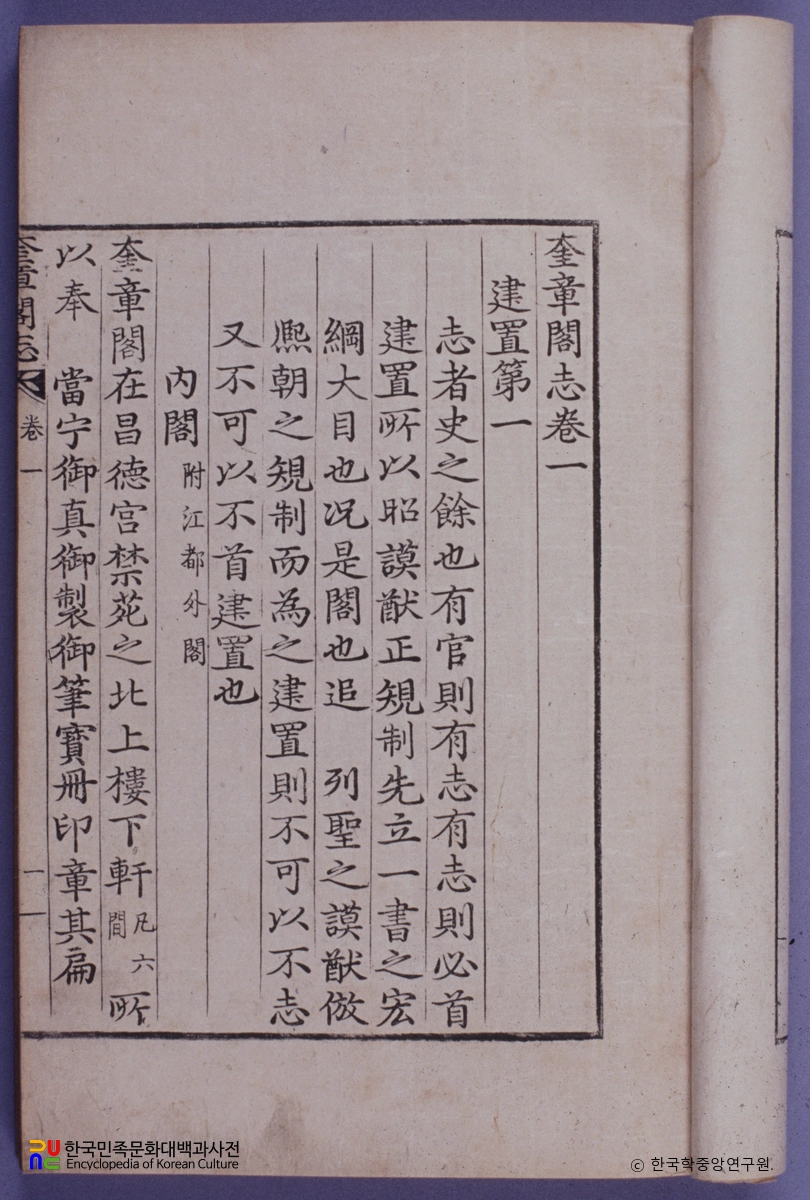 奎章閣志卷一
建置第一
志者史之餘也有官則有志有志則必首
建置所以昭謨猷正規制先立一書之宏
綱大目也况是閣也追 列聖之謨猷倣
熈朝之規制而為之建置則不可以不志
又不可以不首建置也
內閣 附江都外閣
奎章閣在昌德宫禁苑之北上樓下軒凡六間所
以奉 當宁御真御製御筆寶冊印章其扁
奎章閣志 卷一 一
한국민족문화대백과사전
Encyclopedia of Korean Culture
© 한국학중앙연구원.